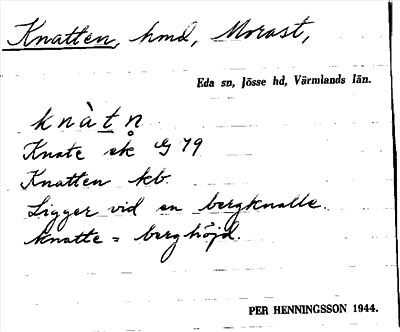 Knatten, hmd, Morast,
Eda sn, Jösse hd, Värmlands län.
knàtn̥
Knate ek G 79
Knatten kb.
Ligger vid en bergknalle.
knatte = berghöjd.
PER HENNINGSSON 1944.